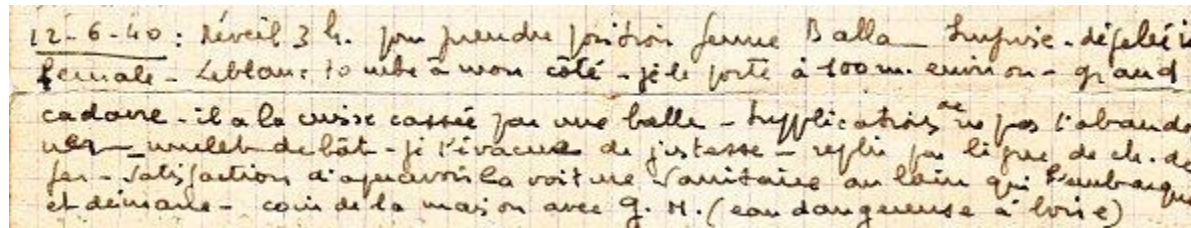 12-6-40 : Réveil 3 h. pour prendre position ferme Balla Surprise - défilé i
fernale - Leblanc tombe à mon côté - je le porte à 100 m. environ - grand
cadavre - il a la cuisse cassée par une balle - supplications de ne pas l'abando
ner - mulet de bât - je l'évacue de justesse - repli par ligne de ch. de
fer - satisfaction d'apercevoir la voiture sanitaire au loin qui l'embarque
et démarre - coin de la maison avec G. M. (eau dangereuse à boire)